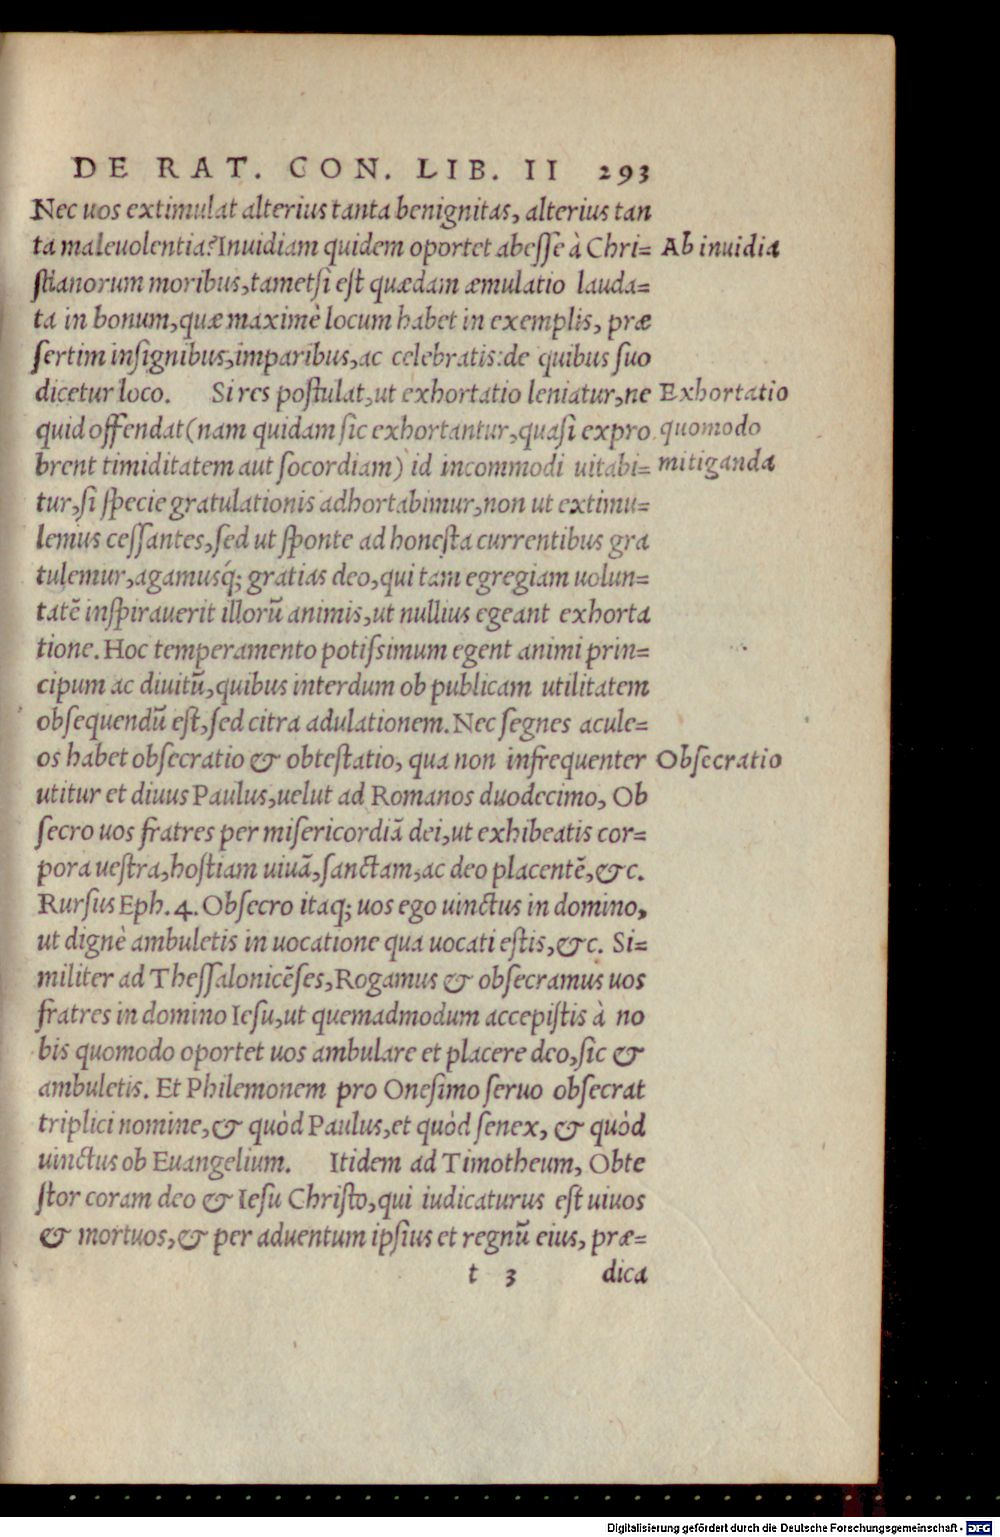 DE RAT. CON. LIB. II 293
Nec uos extimulat alterius tanta benignitas, alterius tan
ta maleuolentia? Inuidiam quidem oportet abesse à Chri= Ab inuidia
stianorum moribus, tametsi est quædam æmulatio lauda=
ta in bonum, quæ maximè locum habet in exemplis, præ
sertim insignibus, imparibus, ac celebratis: de quibus suo
dicetur loco. Si res postulat, ut exhortatio leniatur, ne Exhortatio
quid offendat (nam quidam sic exhortantur, quasi expro quomodo
brent timiditatem aut socordiam) id incommodi uitabi= mitiganda
tur, si specie gratulationis adhortabimur, non ut extimu=
lemus cessantes, sed ut sponte ad honesta currentibus gra
tulemur, agamusq́; gratias deo, qui tam egregiam uolun=
tatē inspirauerit illorū animis, ut nullius egeant exhorta
tione. Hoc temperamento potissimum egent animi prin=
cipum ac diuitū, quibus interdum ob publicam utilitatem
obsequendū est, sed citra adulationem. Nec segnes acule=
os habet obsecratio & obtestatio, qua non infrequenter Obsecratio
utitur et diuus Paulus, uelut ad Romanos duodecimo, Ob
secro uos fratres per misericordiā dei, ut exhibeatis cor=
pora uestra, hostiam uiuā, sanctam, ac deo placentē, &c.
Rursus Eph. 4. Obsecro itaq; uos ego uinctus in domino,
ut dignè ambuletis in uocatione qua uocati estis, &c. Si=
militer ad Thessalonicēses, Rogamus & obsecramus uos
fratres in domino Iesu, ut quemadmodum accepistis à no
bis quomodo oportet uos ambulare et placere deo, sic &
ambuletis. Et Philemonem pro Onesimo seruo obsecrat
triplici nomine, & quòd Paulus, et quòd senex, & quòd
uinctus ob Euangelium. Itidem ad Timotheum, Obte
stor coram deo & Iesu Christo, qui iudicaturus est uiuos
& mortuos, & per aduentum ipsius et regnū eius, præ=
t 3 dica
Digitalisierung gefördert durch die Deutsche Forschungsgemeinschaft - DFG